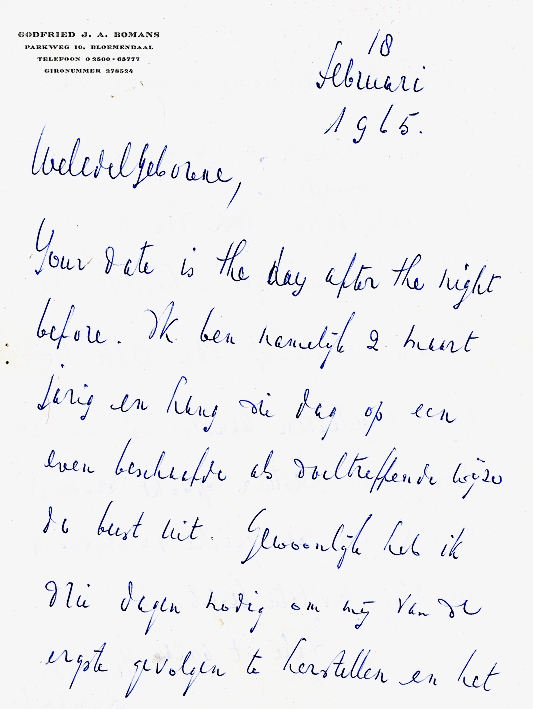 GODFRIED J. A. BOMANS
PARKWEG 10, BLOEMENDAAL
TELEFOON 02500-63777
GIRONUMMER 278524
18
februari
1965.
WeledelGeborene,
Your date is the day after the night
before. Ik ben namelijk 2 maart
jarig en hang die dag op een
even beschaafde als doeltreffende wijze
de beest uit. Gewoonlijk heb ik
drie dagen nodig om mij van de
ergste gevolgen te herstellen en het